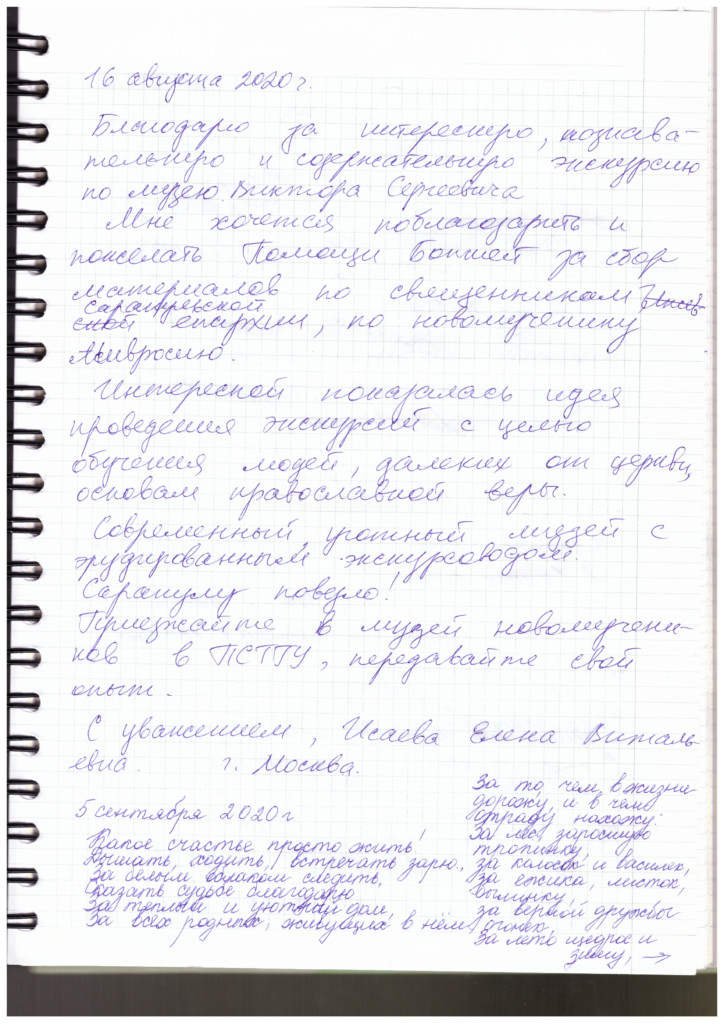 16 августа 2020 г.
Благодарю за интересную, познава-
тельную и содержательную экскурсию
по музею Виктора Сергеевича
Мне хочется поблагодарить и
пожелать Помощи Божией за сбор
материалов по священникам
сарапульской
ской епархии, по новомученику
Амвросию.
Интересной показалась идея
проведения экскурсий с целью
обучения людей, далеких от церкви,
основам православной веры.
Современный, уютный музей с
эрудированным экскурсоводом.
Сарапулу повезло!
Приезжайте в музей новомучени-
ков в ПСТГУ, передавайте свой
опыт.
С уважением, Исаева Елена Виталь-
евна. г. Москва.
5 сентября 2020 г
Какое счастье просто жить!
Дышать, ходить, встречать зарю,
За белым облаком следить,
Сказать судьбе благодарю
За теплый и уютный дом,
За всех родных, живущих в нём,
За то, чем, в жизни
дорожу, и в чём
отраду нахожу:
За лес, заросшую
тропинку,
за колосок и василек,
За ежика, листок,
былинку,
за верной дружбы
огонек,
За лето щедрое и
зиму, →